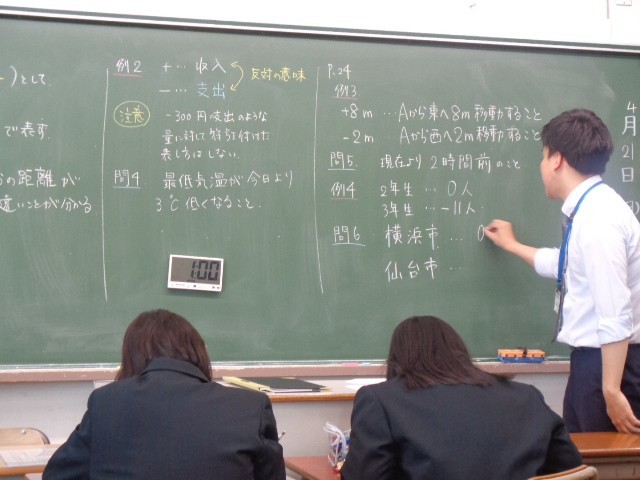 )として.
で表す.
の距離が
違いことが分かる
例2 +… 収入
-… 支出
反対の意味
注意 -300円の支出のような
量に対して符号を付けた
表し方はしない.
問4 最低気温が今日より
3℃低くなること.
1:00
P.24
例3
+8m …Aから東へ8m移動すること
-2m …Aから西へ2m移動すること
問5. 現在より2時間前のこと
例4 2年生 … 0人
3年生 … -11人
問6 横浜市 … 0
仙台市 …
4月21日